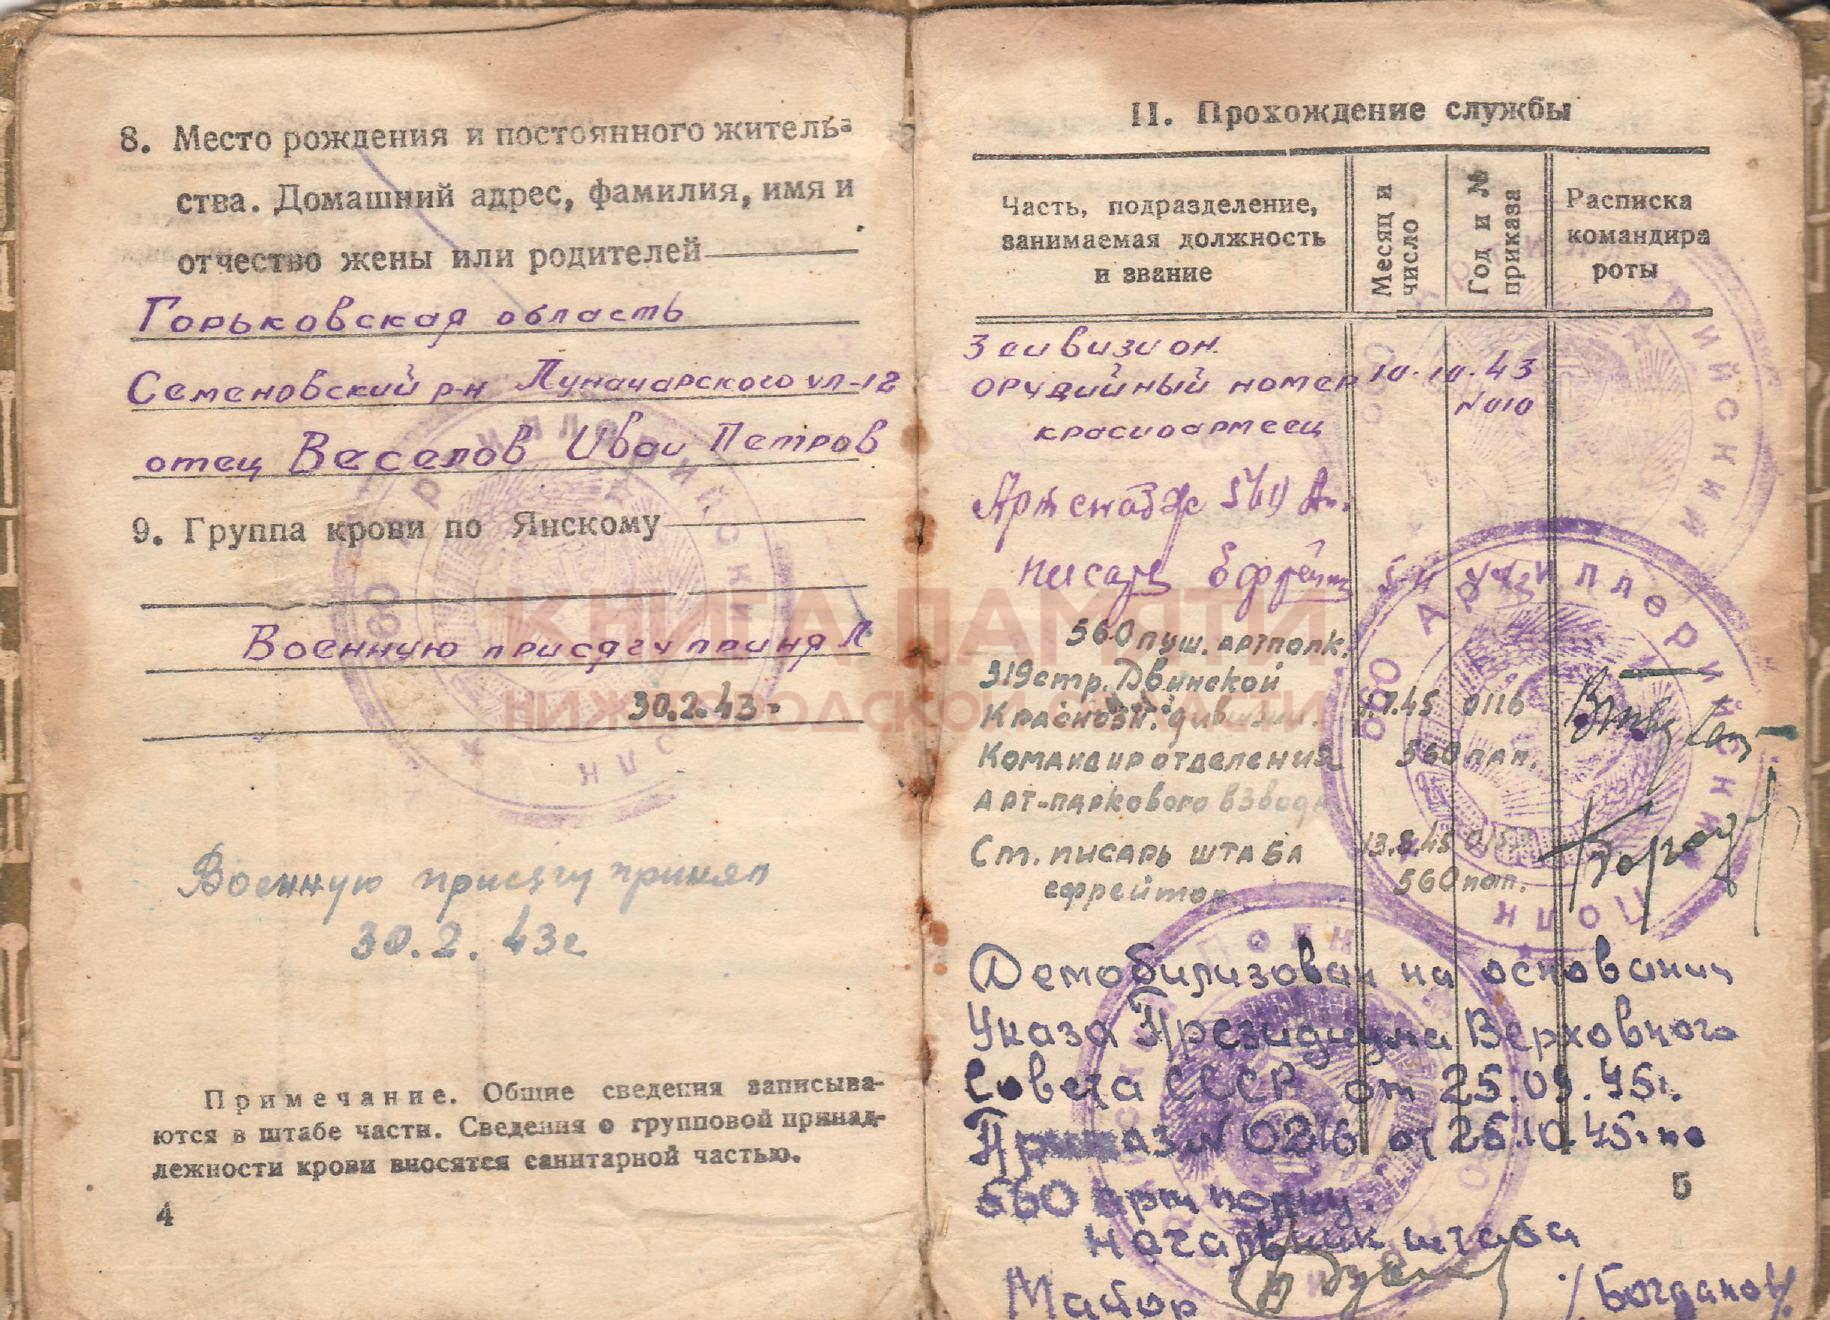 8. Место рождения и постоянного житель-
ства. Домашний адрес, фамилия, имя и
отчество жены или родителей
Горьковская область
Семеновский р-н Луначарского ул-12
отец Веселов Иван Петров
9. Группа крови по Янскому
Военную присягу принял
30.2.43г
Военную присягу принял
30.2.43г
Примечание. Общие сведения записыва-
ются в штабе части. Сведения о групповой принад-
лежности крови вносятся санитарной частью.
4
II. Прохождение службы
Часть, подразделение,
занимаемая должность
и звание
Месяц и
число
Год и №
приказа
Расписка
командира
роты
3 дивизион
орудийный номер 10.10.43
№010
красноармеец
Артснабж
писарь ефрейт
560 пуш. артполк.
319 стр. Двинской
Краснозн. дивизии. 7.45 0116
Командир отделения 560 пап.
арт-паркового взвода
Ст. писарь штаба 13.8.45
ефрейтор. 560 пап.
Демобилизован на основании
Указа Президиума Верховного
Совета СССР от 25.09.45г.
Приказ №0216 от 25.10.45г. по
560 арт полку.
Начальник штаба
Майор /Богданов/
5
560 АРТИЛЛЕРИЙСКИЙ ПОЛК
КНИГА ПАМЯТИ
НИЖЕГОРОДСКОЙ ОБЛАСТИ